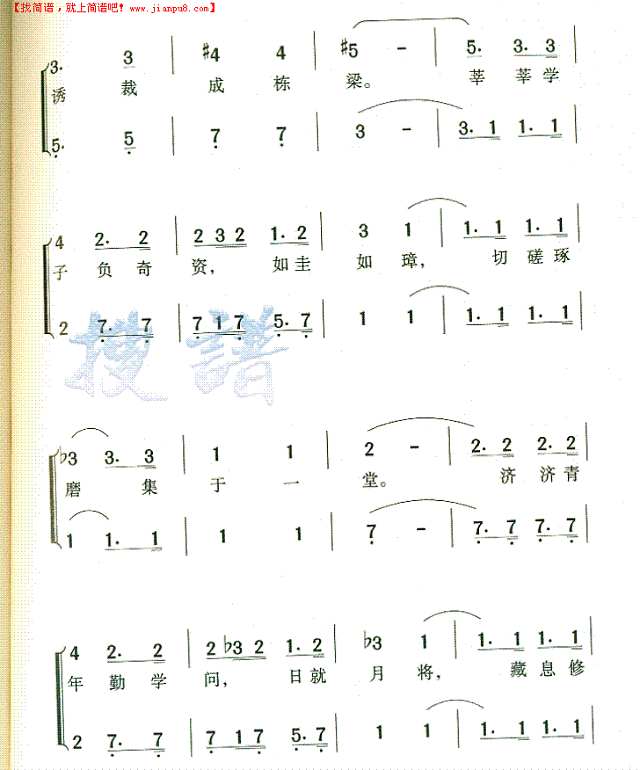 【找简谱，就上简谱吧! www.jianpu8.com】
3. 3 | #4 4 | #5 - | 5. 3. 3
诱 裁 成 栋 梁。 莘 莘 学
5. 5 | 7 7 | 3 - | 3. 1 1. 1
4 2. 2 | 2 3 2 1. 2 | 3 1 | 1. 1 1. 1
子 负 奇 资， 如 圭 如 璋， 切 磋 琢
2 7. 7 | 7 1 7 5. 7 | 1 1 | 1. 1 1. 1
搜谱
♭3 3. 3 | 1 1 | 2 - | 2. 2 2. 2
磨 集 于 一 堂。 济 济 青
1 1. 1 | 1 1 | 7 - | 7. 7 7. 7
4 2. 2 | 2 ♭3 2 1. 2 | ♭3 1 | 1. 1 1. 1
年 勤 学 问， 日 就 月 将， 藏 息 修
2 7. 7 | 7 1 7 5. 7 | 1 1 | 1. 1 1. 1